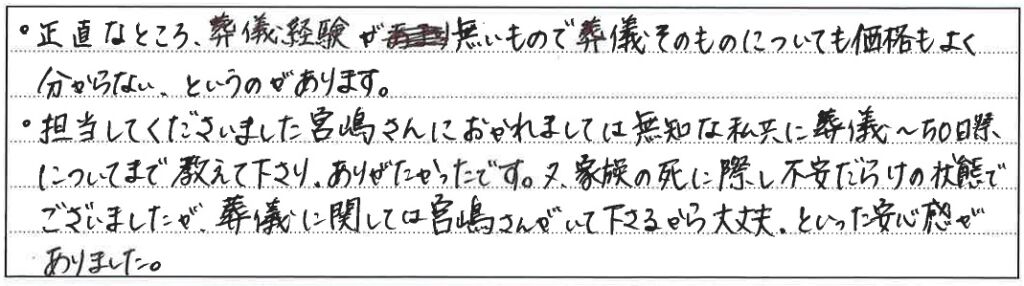 ・正直なところ、葬儀経験が無いもので葬儀そのものについても価格もよく
分からない、というのがあります。
・担当してくださいました宮嶋さんにおかれましては無知な私共に葬儀〜50日祭
についてまで教えて下さり、ありがたかったです。又、家族の死に際し不安だらけの状態で
ございましたが、葬儀に関しては宮嶋さんがいて下さるから大丈夫、といった安心感が
ありました。